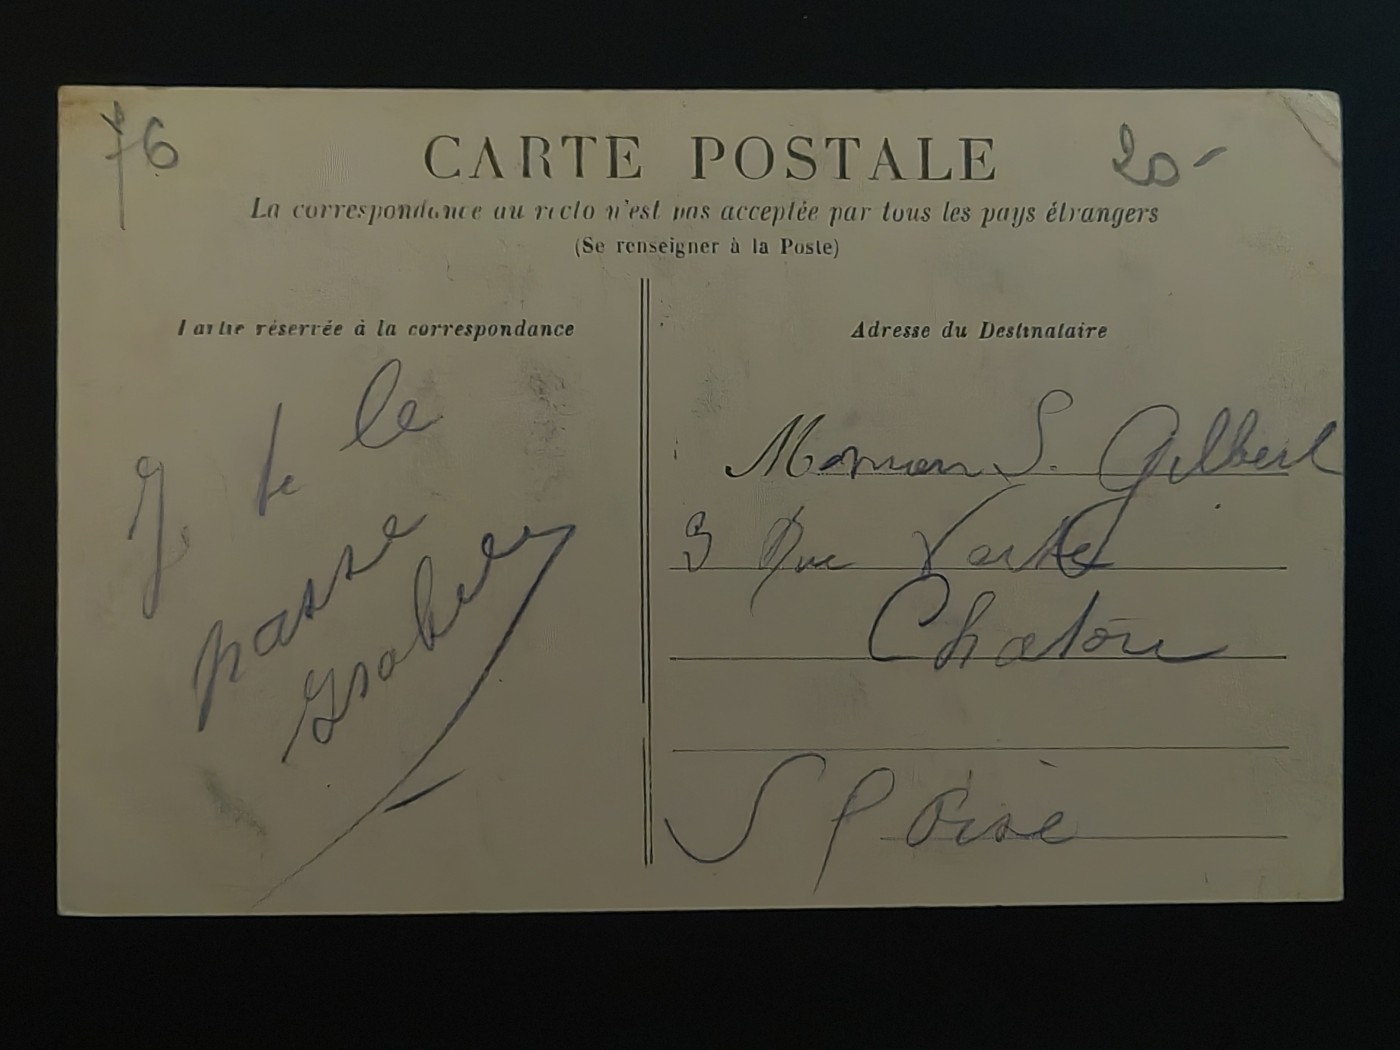 76
CARTE POSTALE
20-
La correspondance au recto n'est pas acceptée par tous les pays étrangers
(Se renseigner à la Poste)
Partie réservée à la correspondance
Je te le
passe
Adresse du Destinataire
S. Gilbert
3 Rue Verte
Chatou
S Oise